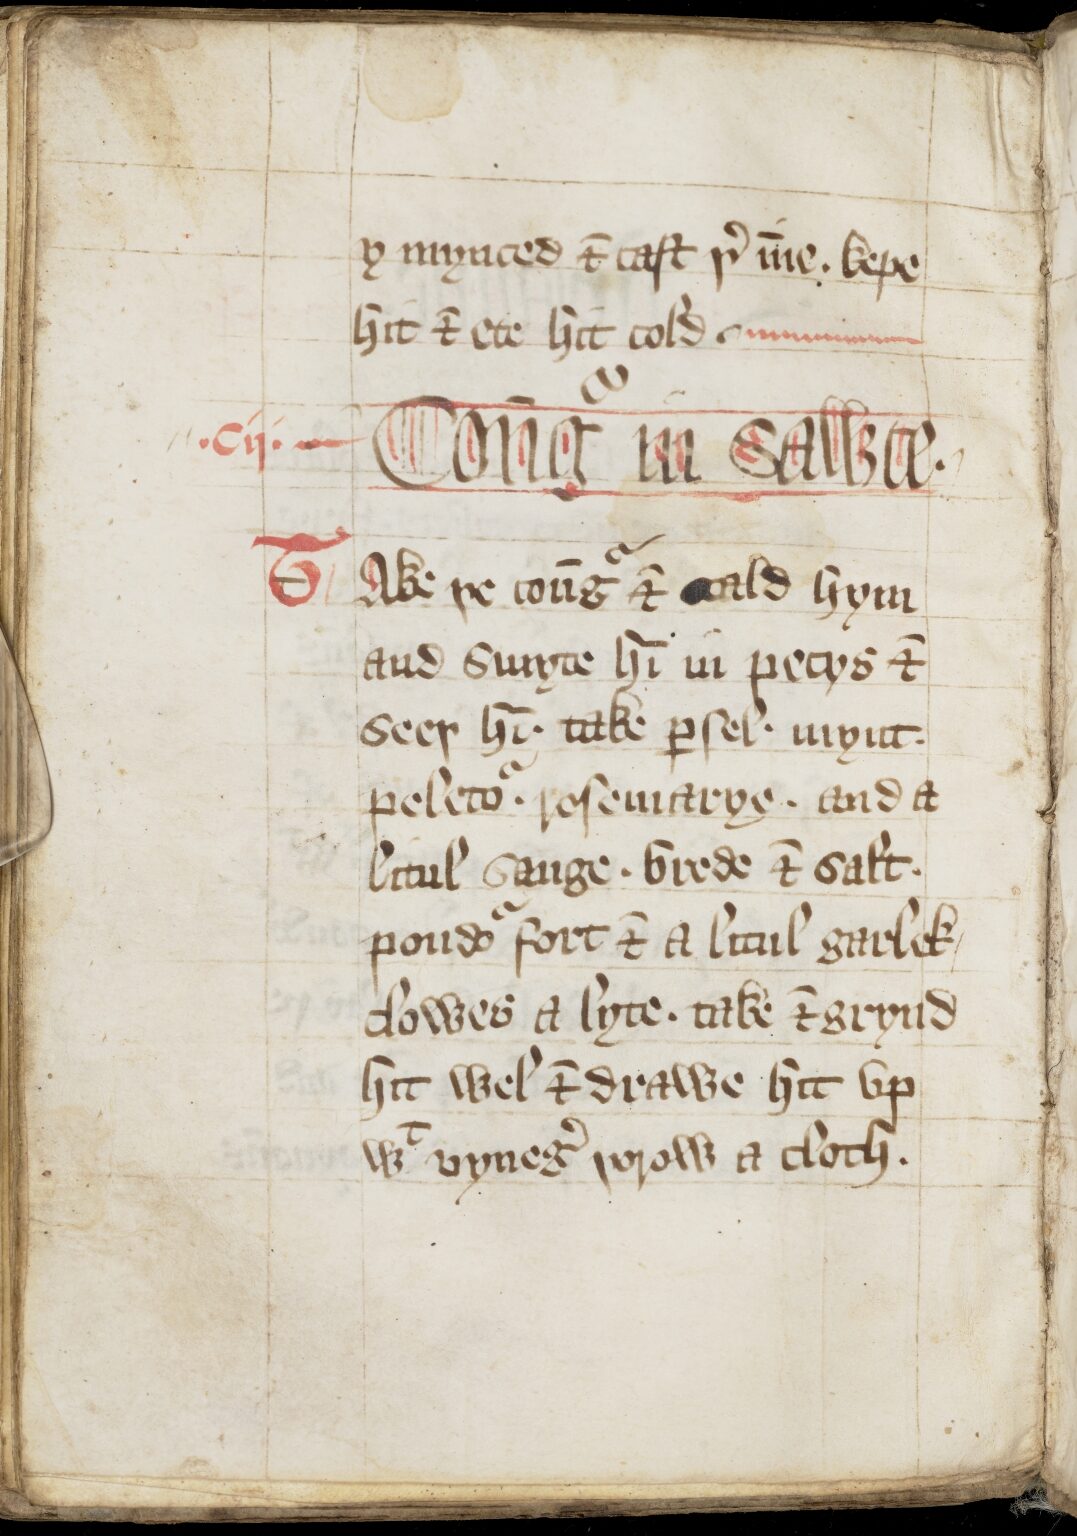 y mynced ⁊ cast þ̉ īne. kepe
hit ⁊ ete hit cold.
.Cij. Conḡ in Sawce.
TAke þe cong̉ ⁊ scald hym
and smyte hī in pecys ⁊
seeþ hī. take ꝑsel. mynt.
peletỏ. rosemarye. and a
litul sauge. brede ⁊ salt.
poudỏ fort ⁊ a litul garlek
clowes a lyte. take ⁊ grynd
hit wel ⁊ drawe hit vp
wᵗ vyneg̉ þorow a cloth.